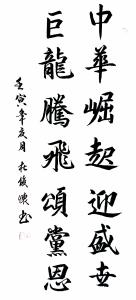 中華崛起迎盛世
巨龍騰飛頌黨恩
壬寅年夏月